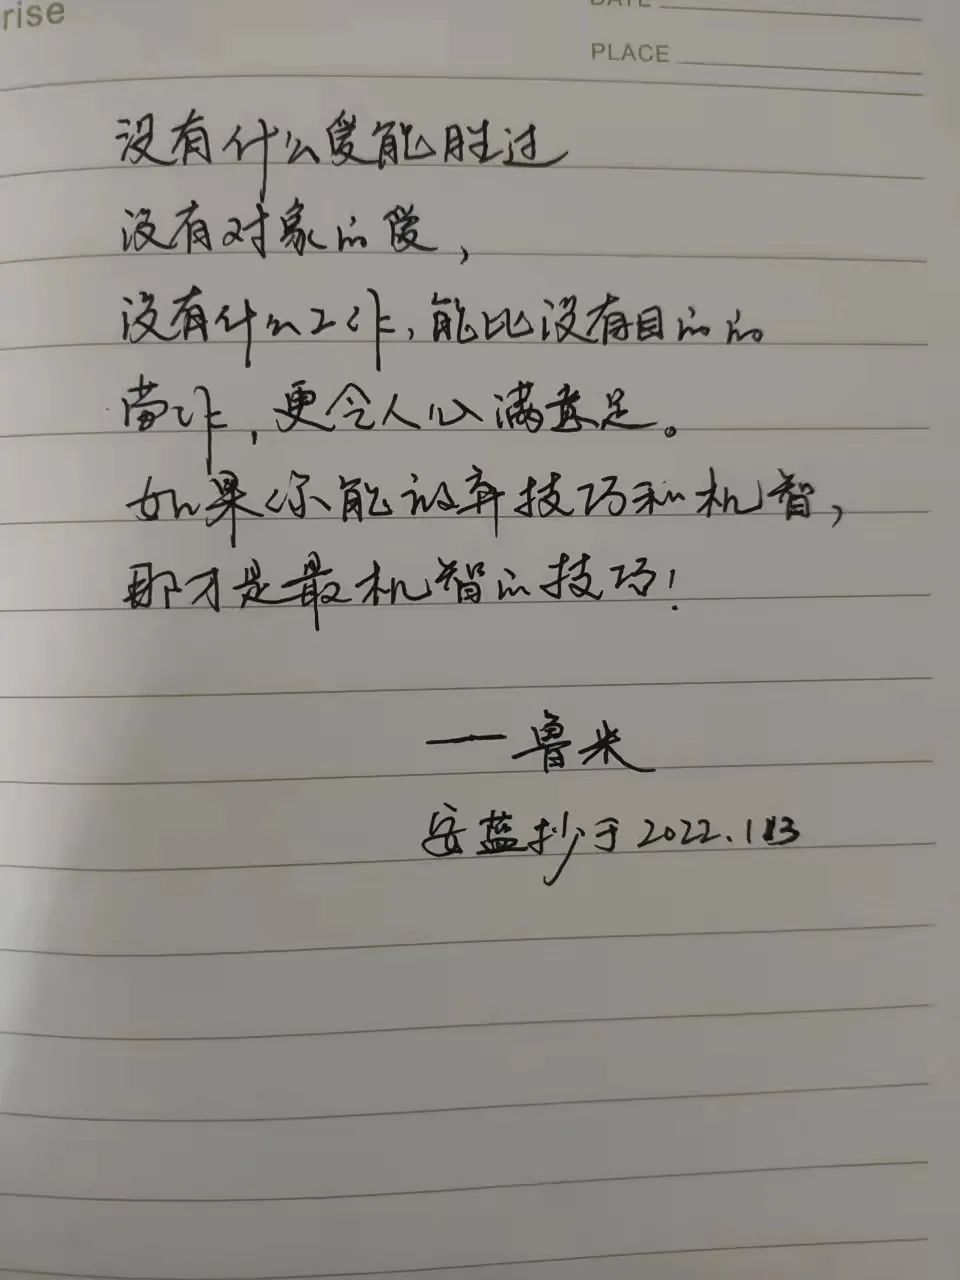 rise
DATE
PLACE
没有什么爱能胜过
没有对象的爱,
没有什么工作,能比没有目的的
劳作,更令人心满意足。
如果你能放弃技巧和机智,
那才是最机智的技巧!
——鲁米
安蓝抄于2022.1.13